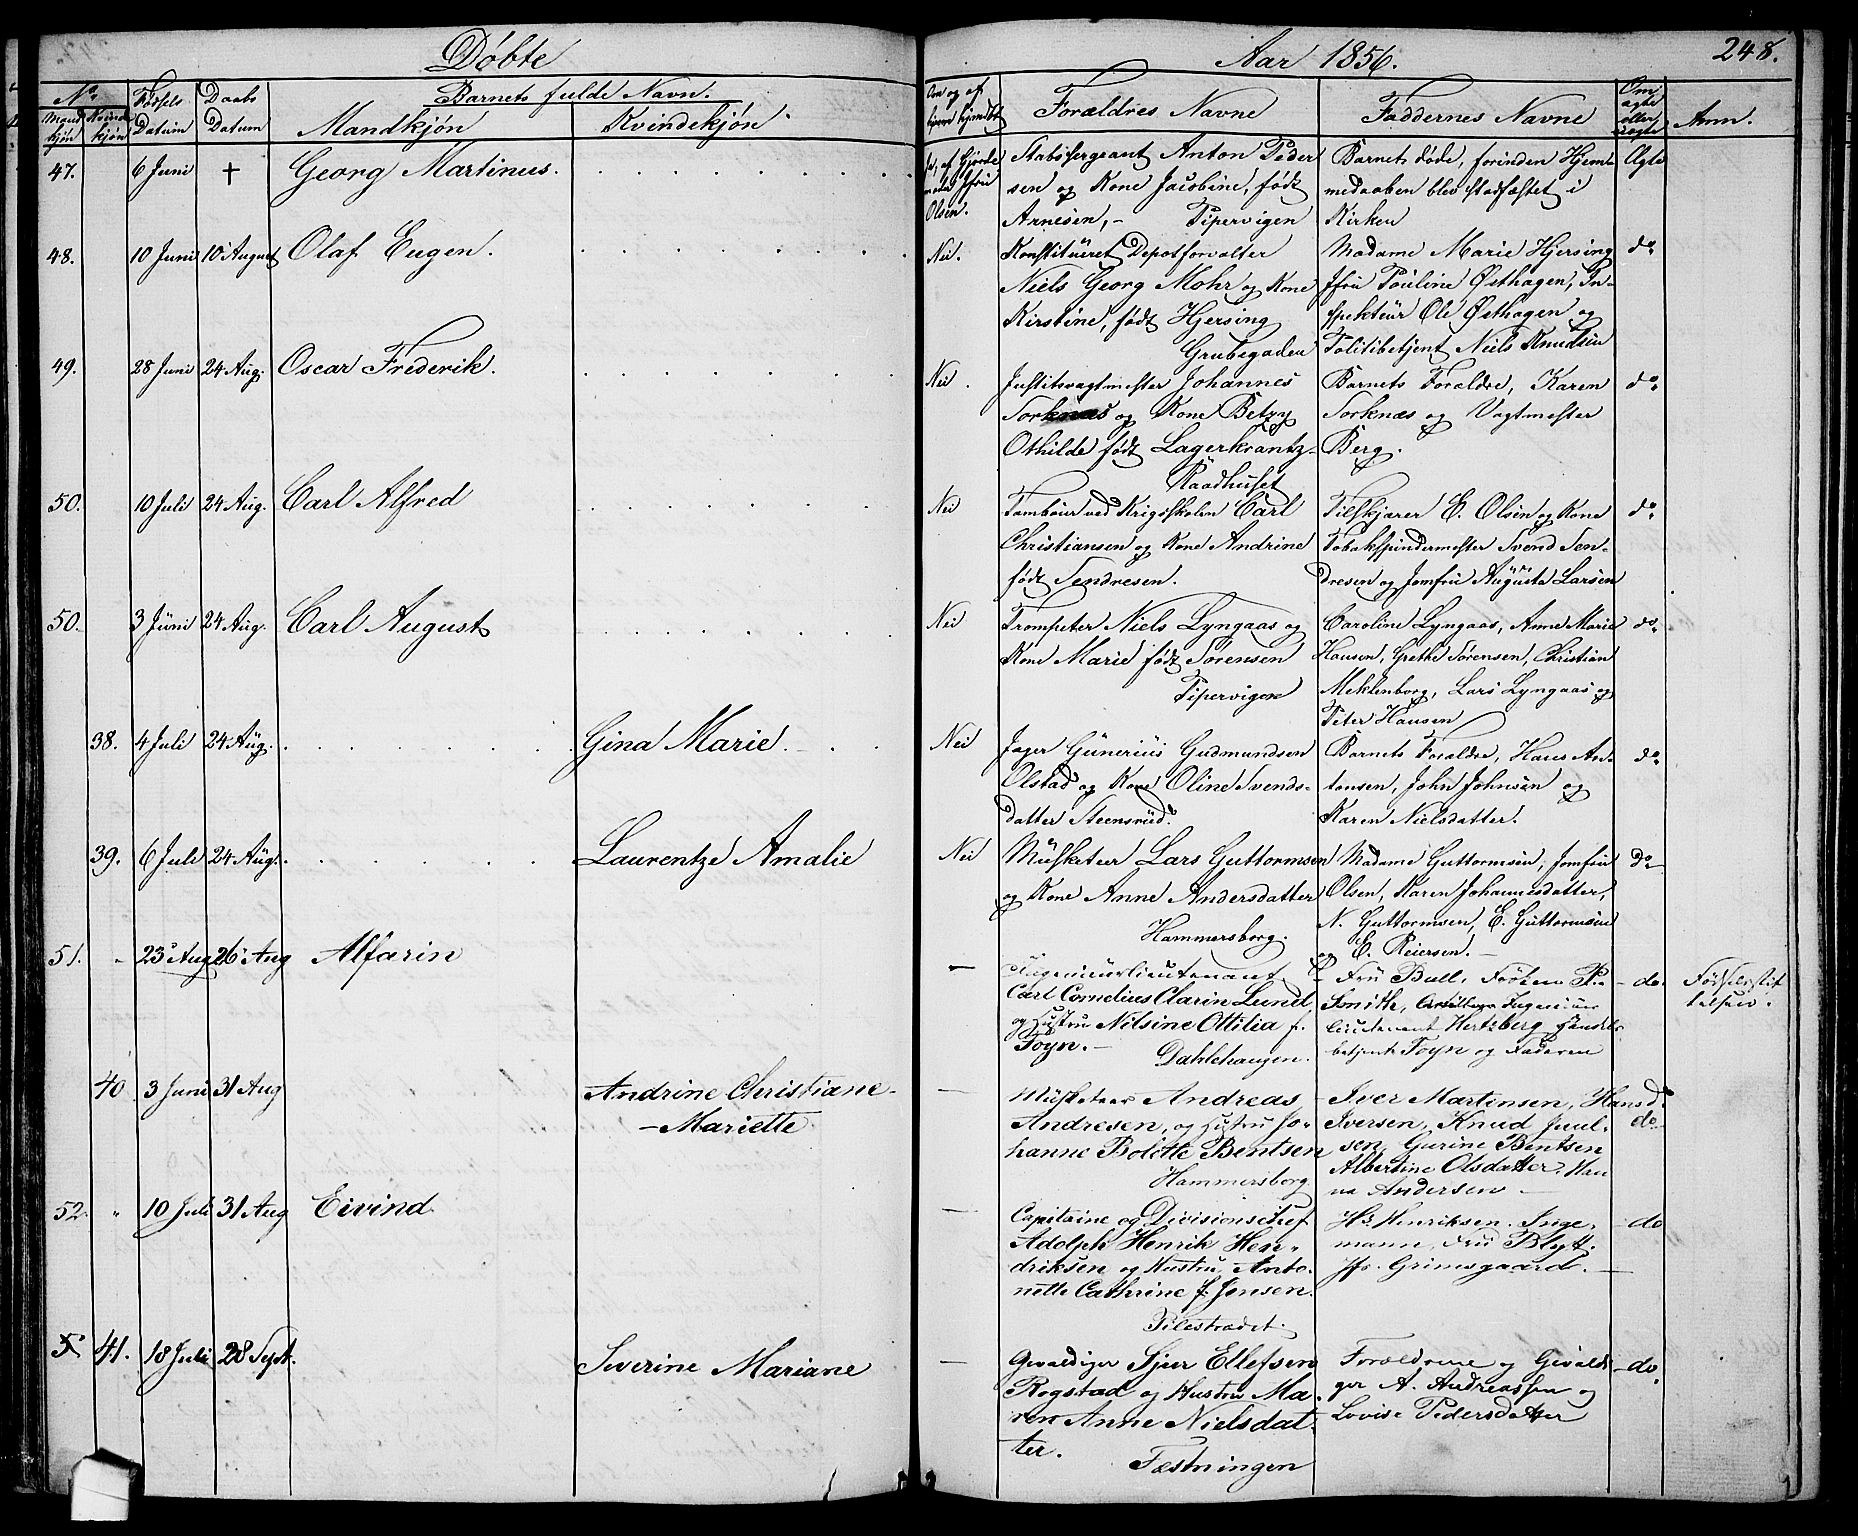 Døbte
Aar 1856.
248.
No.
Mandkjøn
Kvindekjøn
Fødsels Datum
Daabs Datum
Barnets fulde Navn.
Mandkjøn
Kvindekjøn
Om og af hjemmedøbt
Forældres Navne
Faddernes Navne
Om ægte eller uægte
Anm.
47.
6 Juni
+
Georg Martinus.
af Gjorde-
moder Jfru
Olsen.
Stabssergeant Anton Peder
sen og Kone Jacobine, født
Arnesen, - Pipervigen
Barnet døde, forinden Hjem-
medaaben blev stadfæstet i
Kirken
Ægte
48.
10 Juni
10 August
Olaf Eugen.
Nei.
Konstitueret Depotforvalter
Niels Georg Mohr og Kone
Kirstine, født Hjersing
Grubegaden
Madame Marie Hjersing
Jfru Pouline Østhagen, In-
spekteur Ole Østhagen og
Politibetjent Niels Knudsen
do
49.
28 Juni
24 Aug.
Oscar Frederik.
Nei.
Justitsvagtmester Johannes
Torknæs og Kone Betzy
Othilde født Lagerkrantz-
Raadhuset
Barnets Forældre, Karen
Torknæs og Vagtmester
Berg.
do
50.
10 Juli
24 Aug.
Carl Alfred
Nei
Tambour ved Krigsskolen Carl
Christiansen og Kone Andrine
født Tendresen.
Filskjærer E. Olsen og Kone
Tobakspindermester Svend Ten-
dresen og Jomfru Augusta Larsen
do
50.
3 Juni
24 Aug.
Carl August
Nei
Trompeter Niels Lyngaas og
Kone Marie født Sørensen
Pipervigen
Caroline Lyngaas, Anne Marie
Hansen, Grethe Sørensen, Christian
Meklenborg, Lars Lyngaas og
Peter Hansen
do
38.
4 Juli
24 Aug.
Gina Marie.
Nei
Jæger Gunerius Gudmundsen
Olstad og Kone Oline Svends-
datter Steensrud.
Barnets Forældre, Hans An-
tonsen, John Johnsen og
Karen Nielsdatter.
do
39.
6 Juli
24 Aug.
Laurentze Amalie
Nei
Musketeer Lars Guttormsen
og Kone Anne Andersdatter
Hammersborg.
Madame Guttormsen, Jomfru
Olsen, Karen Johannesdatter,
N. Guttormsen, E. Guttormsen
og E. Reiersen.
do
51.
23 Aug
26 Aug
Alfarin
-
Ingenieurlieutenant
Carl Cornelius Clarin Lund
og Hustru Nilsine Ottilia f.
Foyn. -
Dahlehaugen.
Fru Bull, Frøken R.
Smith, Ingenieur
lieutenant Hertzberg Handels
betjent Foyn og Faderen
do.
Fødselsstif
telsen.
40
3 Juni
31 Aug
Andrine Christiane
- Mariette.
-
Musketeer Andreas
Andresen, og Hustru Jo-
hanne Bolette Bentsen
Hammersborg
Iver Martinsen, Hans
Iversen, Knud Juul-
sen, Gurine Bentsen
Albertine Olsdatter, Han
na Andersen -
do
52.
10 Juli
31 Aug
Eivind.
-
Capitaine og Divisionschef
Adolph Henrik Hen-
driksen og Hustru Anto-
nette Cathrine f. Jensen.
Pilestrædet.
Hr. Henriksen. Inge-
mann, Fru Blytt.
Jfr. Grimsgaard. -
do
41.
18 Juli
28 Sept.
Severine Mariane
-
Gevaldiger Sjur Ellefsen
Rogstad og Hustru Ma-
ren Anne Nielsdat-
ter.
Fæstningen
Forældrene og Gevaldi-
ger A. Andreassen og
Lovise Pedersdatter
do